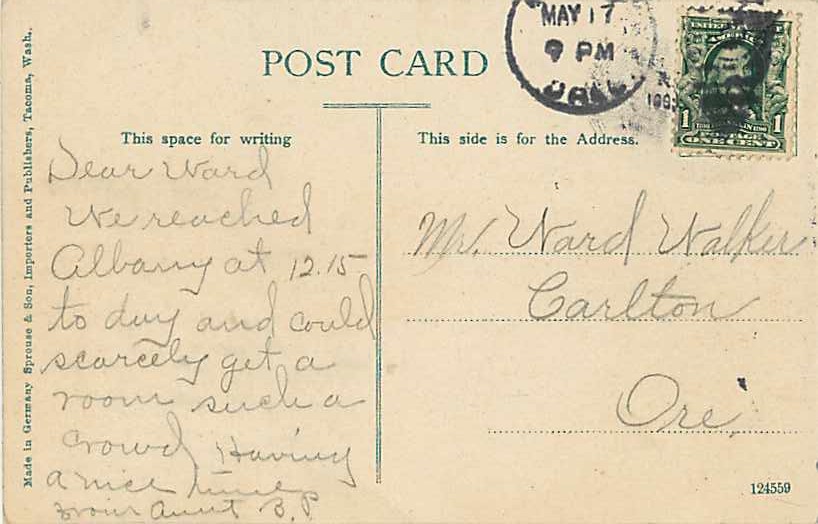 POST CARD
This space for writing
This side is for the Address.
Made in Germany Sprouse & Son, Importers and Publishers, Tacoma, Wash.
MAY 17
9 PM
ONE CENT
1 1
Dear Ward
We reached
Albany at 12.15
to day and could
scarcely get a
room such a
crowd Having
a nice time
From Aunt B. P
Mr. Ward Walker
Carlton
Ore.
124559